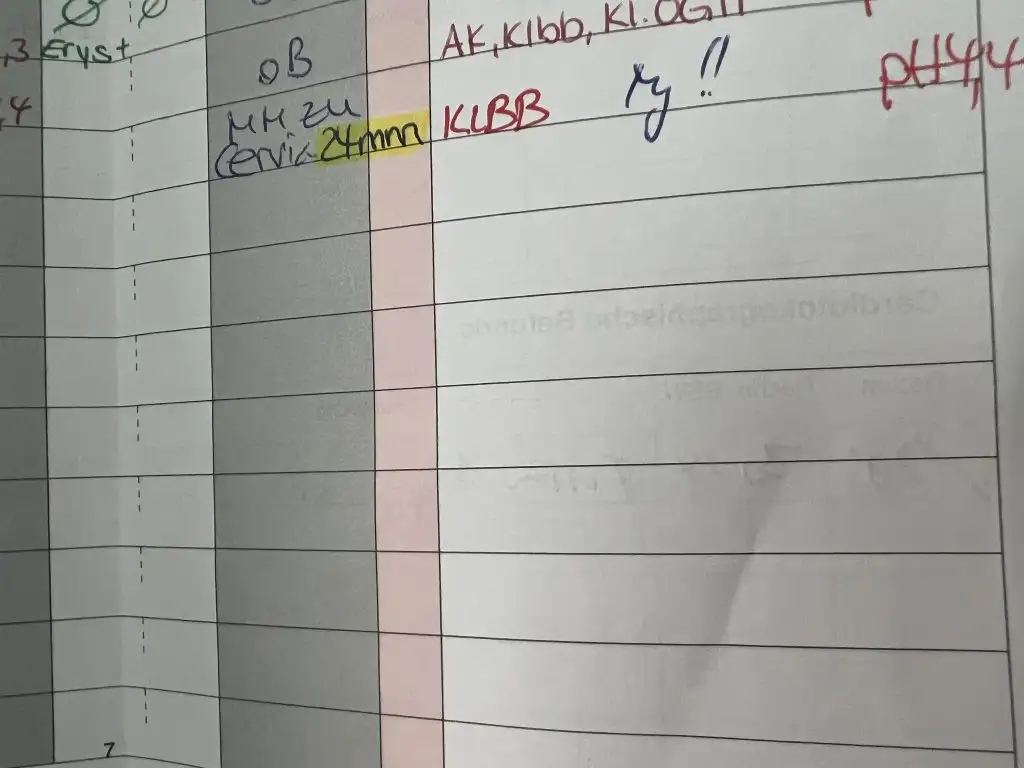 Ø Ø
,3 Eryst oB AK, Klbb, Kl. OGTT
,4 MM zu KLBB !! pH 4,4
Cervix 24mm
7